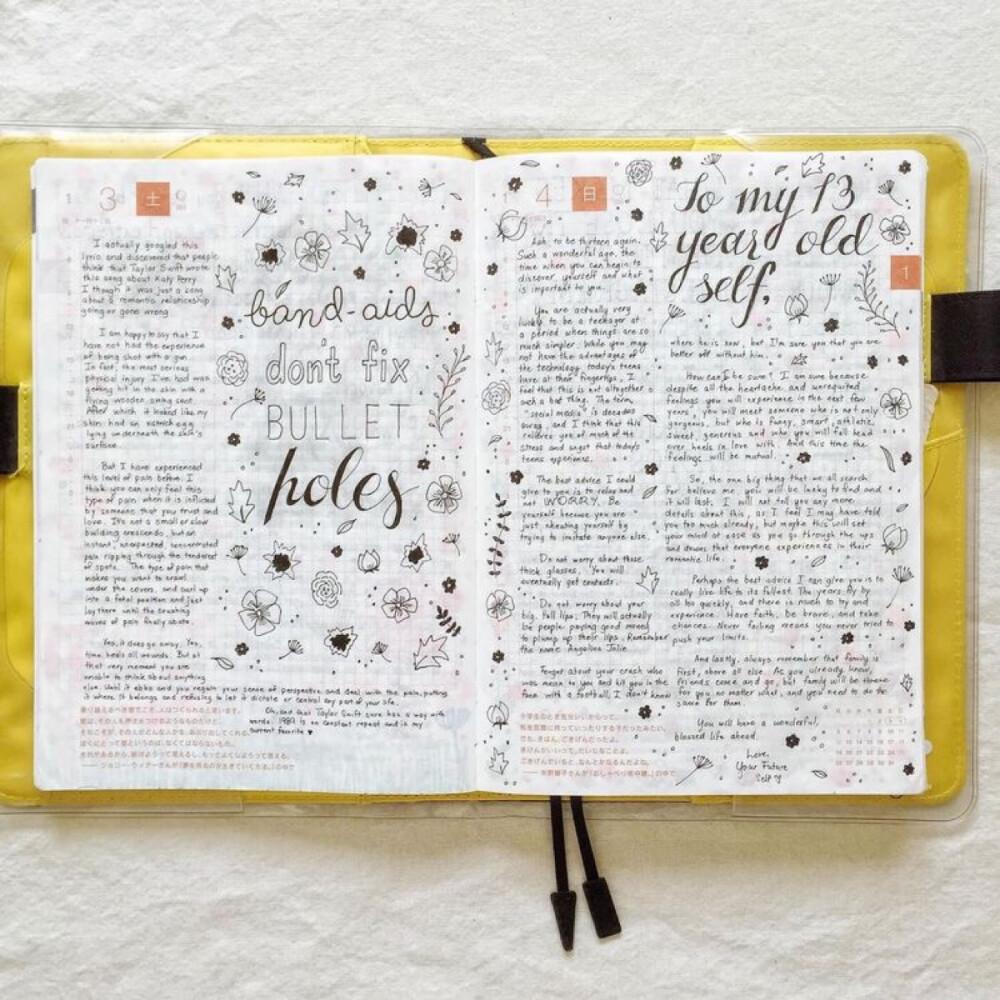 1
3
土
I actually googled this
lyric and discovered that people
think that Taylor Swift wrote
this song about Katy Perry
I though it was just a song
about a romantic relationship
going or gone wrong
I am happy to say that I
have not had the experience
of being shot with a gun
In fact, the most serious
physical injury I've had was
getting hit in the skin with a
flying wooden swing seat
After which it looked like my
skin had an ostrich egg
lying underneath the skin's
surface
But I have experienced
this level of pain before. I
think you can only feel this
type of pain when it is inflicted
by someone that you trust and
love. It's not a small or slow
building crescendo, but an
instant, unexpected, concentrated
pain ripping through the tenderest
of spots. The type of pain that
makes you want to crawl
under the covers, and curl up
into a fetal position and just
lay there until the crushing
waves of pain finally abate.
Yes, it does go away. Yes,
time heals all wounds. But at
that very moment you are
unable to think about anything
else. Until it ebbs and you regain your sense of perspective and deal with the pain, putting
it where it belongs and refusing to let it dictate or control any part of your life.
Oh, and that Taylor Swift sure has a way with
words. 1989 is on constant repeat and is my
current favorite ♥
band-aids
don't fix
BULLET
holes
1
4
日
To my 13
year old
self,
1
Aah, to be thirteen again.
Such a wonderful age, the
time when you can begin to
discover yourself and what
is important to you.
You are actually very
lucky to be a teenager at
a period when things are so
much simpler. While you may
not have the advantages of
the technology today's teens
have at their fingertips, I
feel that this is not altogether
such a bad thing. The term,
"social media" is decades
away, and I think that this
relieves you of much of the
stress and angst that today's
teens experience.
The best advice I could
give to you is to relax and
not WORRY. Be
yourself because you are
just cheating yourself by
trying to imitate anyone else.
Do not worry about those
thick glasses. You will
eventually get contacts.
Do not worry about your
big, full lips. They will actually
be people paying good money
to plump up their lips. Remember
the name Angelina Jolie.
Forget about your crush who
was mean to you and hit you in the
face with a football. I don't know
where he is now, but I'm sure you that you are
better off without him.
How can I be sure? I am sure because
despite all the heartache and unrequited
feelings you will experience in the next few
years, you will meet someone who is not only
gorgeous, but who is funny, smart, athletic,
sweet, generous and who you will fall head
over heels in love with. And this time the
feelings will be mutual.
So, the one big thing that we all search
for, believe me, you will be lucky to find and
it will last. I will not tell you any more
details about this, as I feel I may have told
you too much already, but maybe this will set
your mind at ease as you go through the ups
and downs that everyone experiences in their
romantic life.
Perhaps the best advice I can give you is to
really live life to its fullest. The years fly by
all too quickly, and there is much to try and
experience. Have faith, be brave, and take
chances. Never failing means you never tried to
push your limits.
And lastly, always remember that family is
first, above all else. As you already know,
friends come and go, but family will be there
for you no matter what, and you need to do the
same for them.
You will have a wonderful,
blessed life ahead.
Love,
Your Future
Self